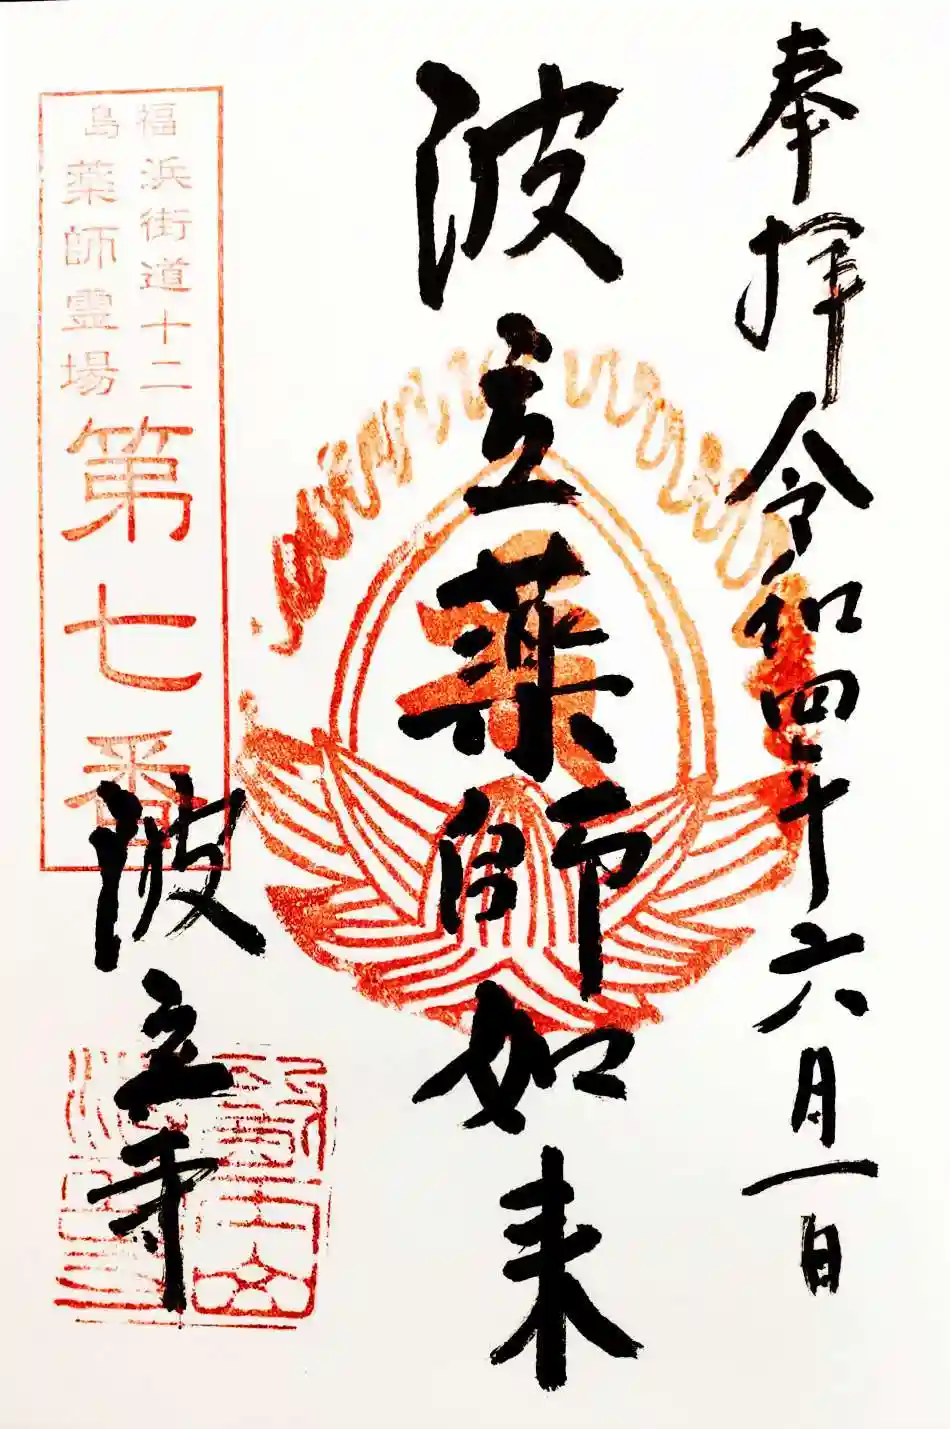 奉拝 令和四年六月一日
波立薬師如来
福島
浜街道十二
薬師霊場
第七番
波立寺